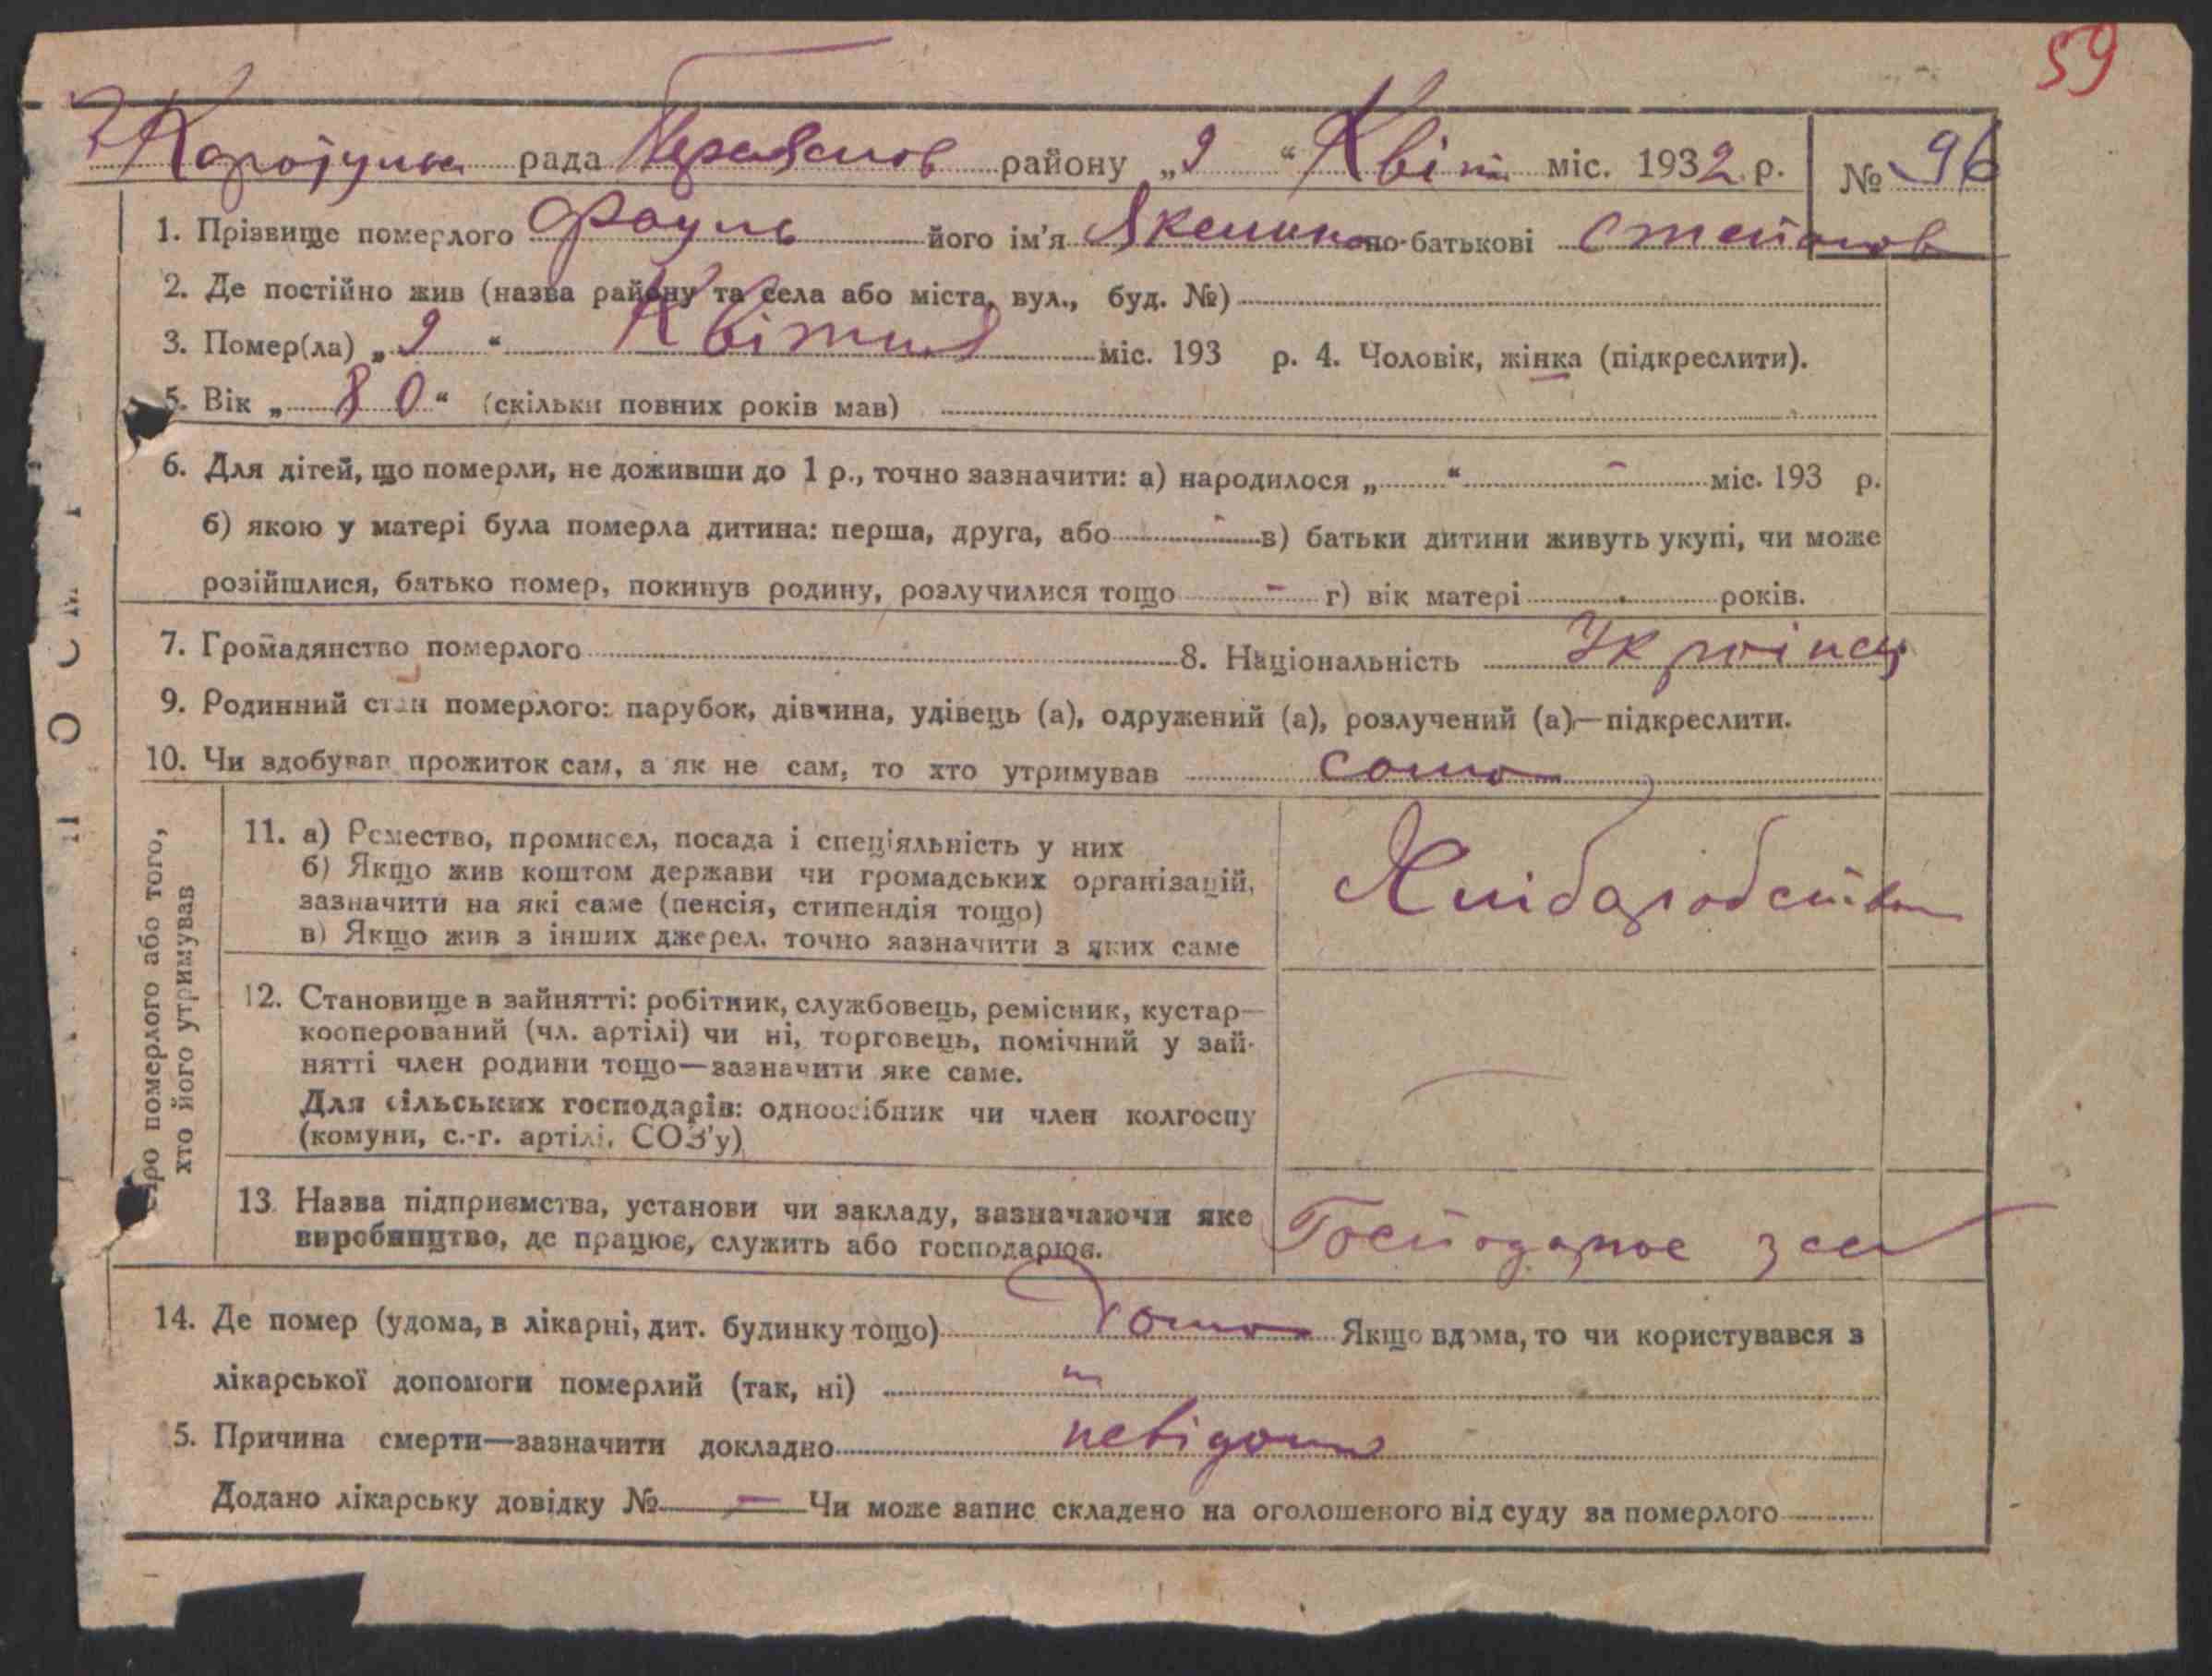 59
рада район у „9 “ Квітн міс. 1932 р. № 96
1. Прізвище померлого його ім'я по-батькові Степанов
2. Де постійно жив (назва району та села або міста, вул., буд. №)
3. Помер(ла) „ 9 “ Квітня міс. 193 р. 4. Чоловік, жінка (підкреслити).
5. Вік „ 80 “ (скільки повних років мав)
6. Для дітей, що померли, не доживши до 1 р., точно зазначити: а) народилося „ “ – міс. 193 р.
б) якою у матері була померла дитина: перша, друга, або - в) батьки дитини живуть укупі, чи може
розійшлися, батько помер, покинув родину, розлучилися тощо - г) вік матері років.
7. Громадянство померлого 8. Національність Українец
9. Родинний стан померлого: парубок, дівчина, удівець (а), одружений (а), розлучений (а)—підкреслити.
10. Чи здобував прожиток сам, а як не сам, то хто утримував сама
Про померлого або того,
хто його утримував
11. а) Ремество, промисел, посада і спеціяльність у них
б) Якщо жив коштом держави чи громадських організацій,
зазначити на які саме (пенсія, стипендія тощо)
в) Якщо жив з інших джерел, точно зазначити з яких саме
12. Становище в зайнятті: робітник, службовець, ремісник, кустар—
кооперований (чл. артілі) чи ні, торговець, помічний у зай-
нятті член родини тощо—зазначити яке саме.
Для сільських господарів: одноосібник чи член колгоспу
(комуни, с.-г. артілі, СОЗ'у)
13. Назва підприємства, установи чи закладу, зазначаючи яке
виробництво, де працює, служить або господарює.
14. Де помер (удома, в лікарні, дит. будинку тощо) Дома Якщо вдома, то чи користувався з
лікарської допомоги померлий (так, ні)
5. Причина смерти—зазначити докладно невідома
Додано лікарську довідку № — Чи може запис складено на оголошеного від суду за померлого